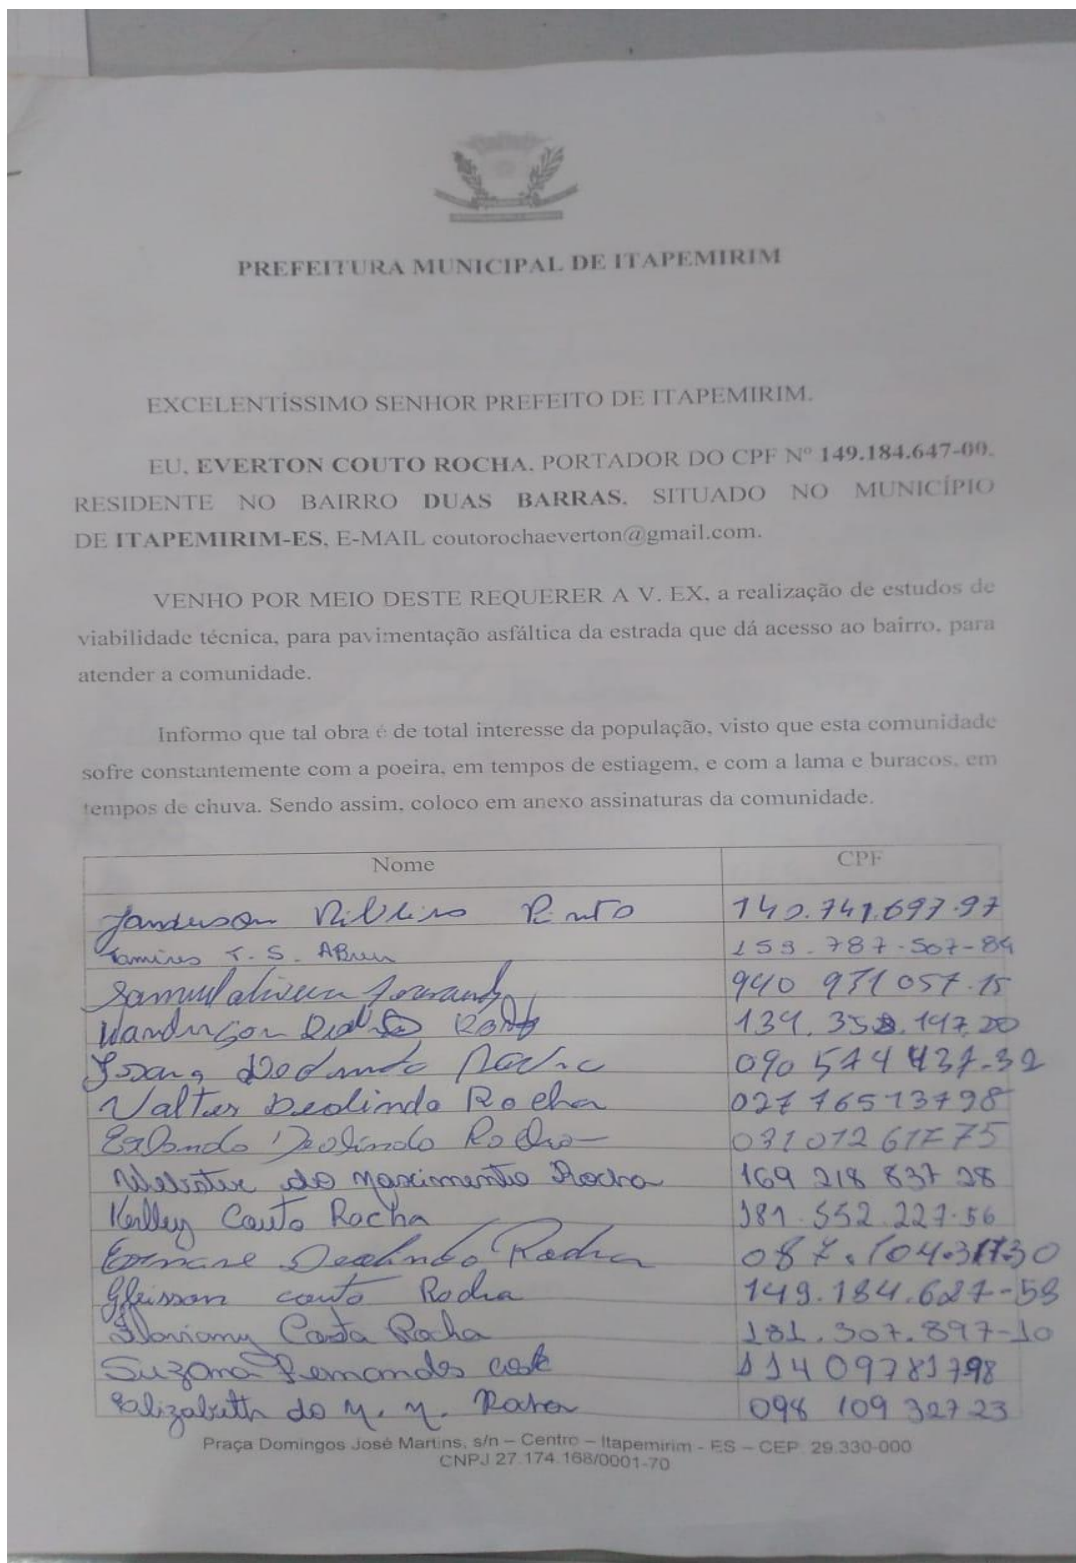 PREFEITURA MUNICIPAL DE ITAPEMIRIM
EXCELENTÍSSIMO SENHOR PREFEITO DE ITAPEMIRIM.
EU, EVERTON COUTO ROCHA, PORTADOR DO CPF Nº 149.184.647-00,
RESIDENTE NO BAIRRO DUAS BARRAS, SITUADO NO MUNICÍPIO
DE ITAPEMIRIM-ES, E-MAIL coutorochaeverton@gmail.com.
VENHO POR MEIO DESTE REQUERER A V. EX, a realização de estudos de
viabilidade técnica, para pavimentação asfáltica da estrada que dá acesso ao bairro, para
atender a comunidade.
Informo que tal obra é de total interesse da população, visto que esta comunidade
sofre constantemente com a poeira, em tempos de estiagem, e com a lama e buracos, em
tempos de chuva. Sendo assim, coloco em anexo assinaturas da comunidade.
Nome CPF
Janderson Ribeiro Pinto 140.741.697-97
Tamires T. S. ABreu 159.787-507-84
940 931 057-15
134.358.147.20
Deolindo Rocha 090 574 437-32
Valter Deolindo Rocha 027 765 137 98
Deolindo Rocha 031 012 617 75
Webster do Nascimento Rocha 169 218 837 28
Kerlley Couto Rocha 181.552.227-56
Deolindo Rocha 087.104.317.30
Gleisson couto Rocha 149.184.627-58
Costa Rocha 181.307.897-10
Suzana Fernandes 114 097 817 98
Elizabeth do N. M. Rocha 098 109 327 23
Praça Domingos José Martins, s/n – Centro – Itapemirim - ES – CEP. 29.330-000
CNPJ 27.174.168/0001-70